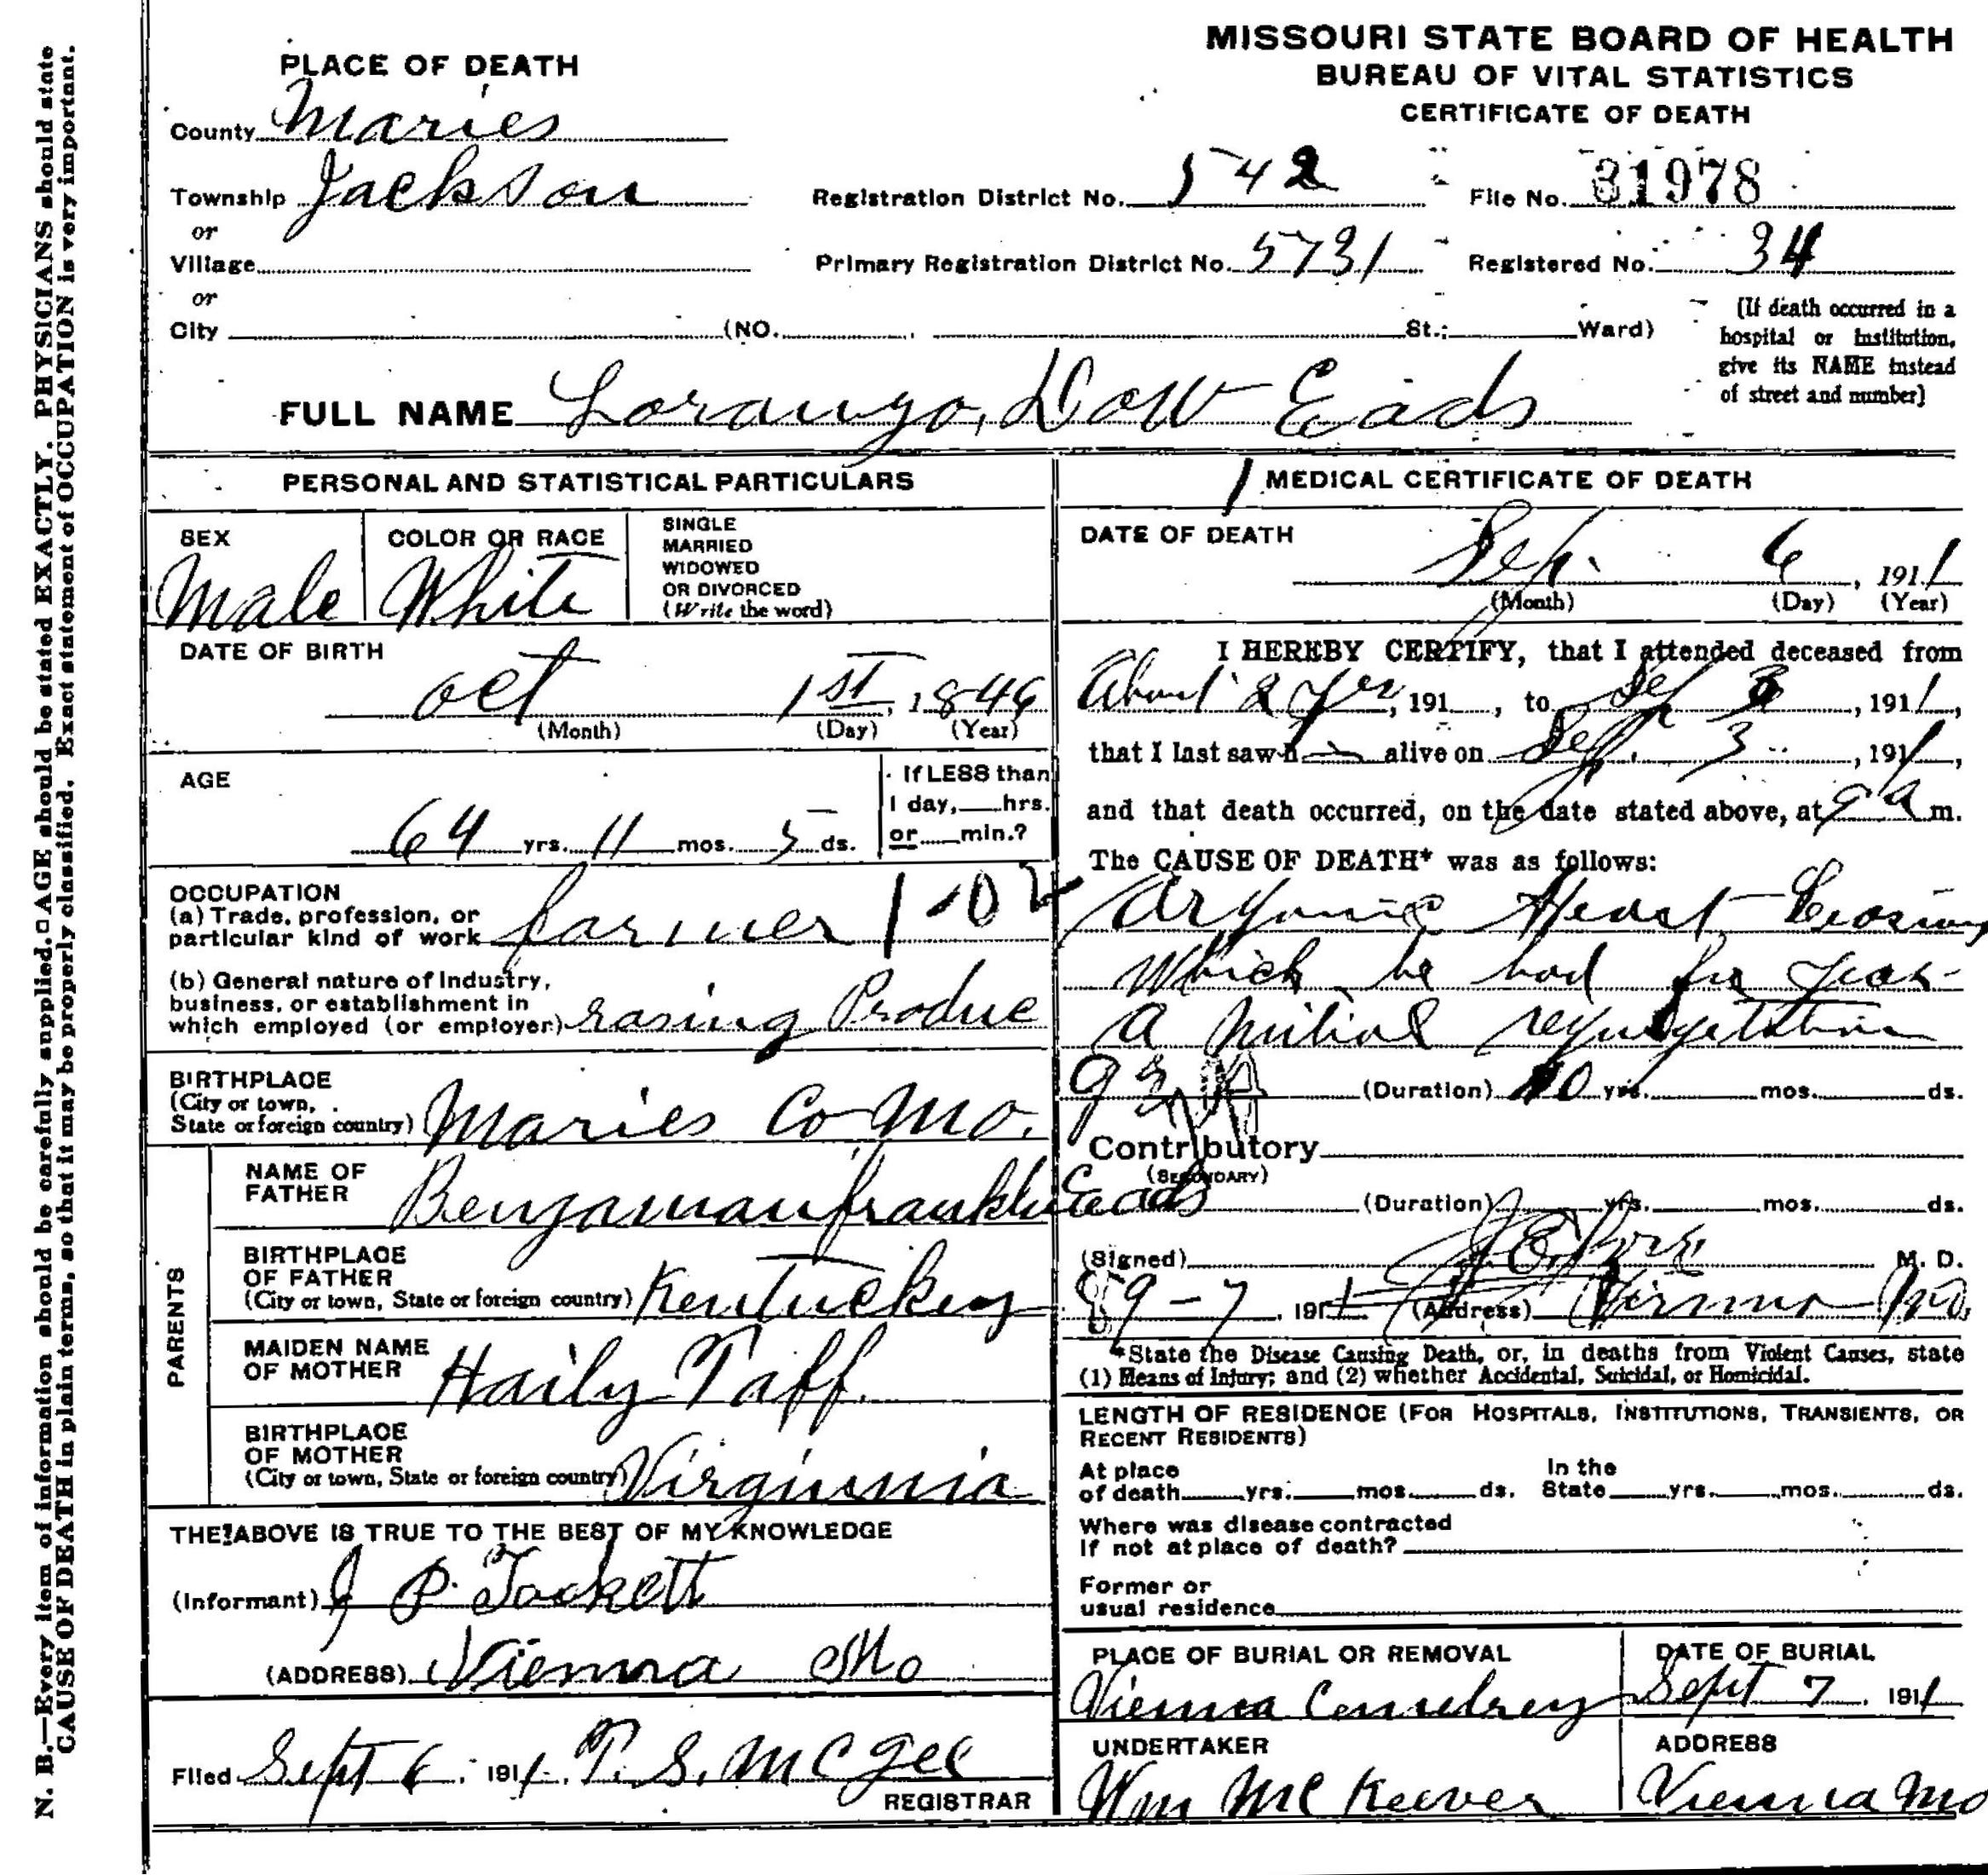 MISSOURI STATE BOARD OF HEALTH
BUREAU OF VITAL STATISTICS
CERTIFICATE OF DEATH
PLACE OF DEATH
County Maries
Township Jackson
or
Village
or
City (NO. St.; Ward)
Registration District No. 542
File No. 31978
Primary Registration District No. 5731
Registered No. 34
(If death occurred in a
hospital or institution,
give its NAME instead
of street and number)
FULL NAME Loranzo, Dow Eads
PERSONAL AND STATISTICAL PARTICULARS
SEX
Male
COLOR OR RACE
White
SINGLE
MARRIED
WIDOWED
OR DIVORCED
(Write the word)
DATE OF BIRTH
Oct 1st, 1846
(Month) (Day) (Year)
AGE
64 yrs. 11 mos. 5 ds.
If LESS than
1 day, hrs.
or min.?
OCCUPATION
(a) Trade, profession, or
particular kind of work farmer
(b) General nature of industry,
business, or establishment in
which employed (or employer) rasing Produc
BIRTHPLACE
(City or town,
State or foreign country) Maries Co Mo.
PARENTS
NAME OF
FATHER Benjaman franklin Eads
BIRTHPLACE
OF FATHER
(City or town, State or foreign country) Kentuckey
MAIDEN NAME
OF MOTHER Haily Taff
BIRTHPLACE
OF MOTHER
(City or town, State or foreign country) Virginnia
THE ABOVE IS TRUE TO THE BEST OF MY KNOWLEDGE
(Informant) J P. Tackett
(ADDRESS) Vienna Mo
Filed Sept 6, 1911. T. S. McGee
REGISTRAR
MEDICAL CERTIFICATE OF DEATH
DATE OF DEATH
Sep. 6, 1911
(Month) (Day) (Year)
I HEREBY CERTIFY, that I attended deceased from
About 2 yrs, 191 , to Sep 3, 1911,
that I last saw h alive on Sept. 3, 1911,
and that death occurred, on the date stated above, at 9 a m.
The CAUSE OF DEATH* was as follows:
Organic Heart
Which he had for years
a mitral regurgitation
(Duration) 10 yrs. mos. ds.
Contributory
(SECONDARY)
(Duration) yrs. mos. ds.
(Signed) M. D.
9-7, 1911 (Address) Vienna Mo.
*State the Disease Causing Death, or, in deaths from Violent Causes, state
(1) Means of Injury; and (2) whether Accidental, Suicidal, or Homicidal.
LENGTH OF RESIDENCE (FOR HOSPITALS, INSTITUTIONS, TRANSIENTS, OR
RECENT RESIDENTS)
At place
of death yrs. mos. ds.
In the
State yrs. mos. ds.
Where was disease contracted
if not at place of death?
Former or
usual residence
PLACE OF BURIAL OR REMOVAL
Vienna Cemetrey
DATE OF BURIAL
Sept 7, 1911
UNDERTAKER
Wm McKeever
ADDRESS
Vienna Mo
N. B.—Every item of information should be carefully supplied. AGE should be stated EXACTLY. PHYSICIANS should state
CAUSE OF DEATH in plain terms, so that it may be properly classified. Exact statement of OCCUPATION is very important.